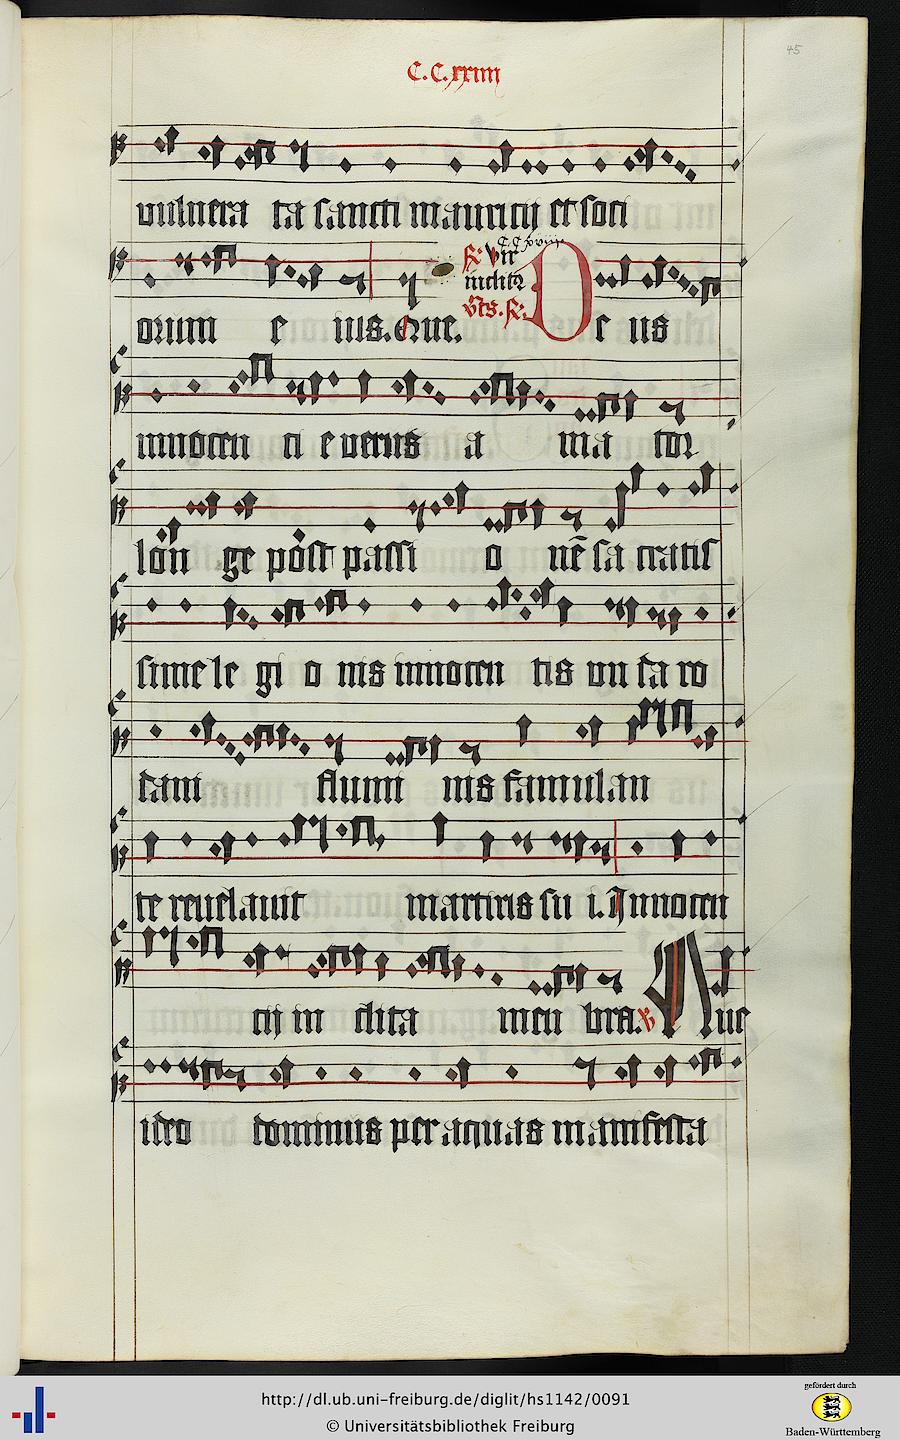 45
C.C.xxiiii
vulnera ta sancti mauricij et soci
C.C.xviiii
Vir
inclitꝰ
orum e ius. Que. De us
innocen ti e verus a ma tor
lon ge post passi o nē sa cratis
sime le gi o nis innocen tis un da ro
dani flumi nis famulan
te reuelauit martiris su i. Innocen
cij in clita mem bra. ℣ Que
ideo dominus per aquas manifesta
http://dl.ub.uni-freiburg.de/diglit/hs1142/0091
© Universitätsbibliothek Freiburg
gefördert durch
Baden-Württemberg